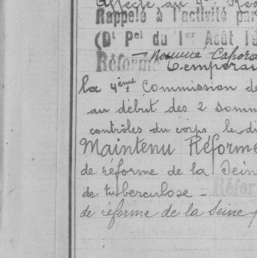 Rappelé à l'activité par
(Dt Pel du 1er Août 19
Réforme Temporai
la 4ème Commission de
au début des 2 somm
contrôles du corps, le di
Maintenu Réformé
de réforme de la Sein
de tuberculose -
de réforme de la Seine